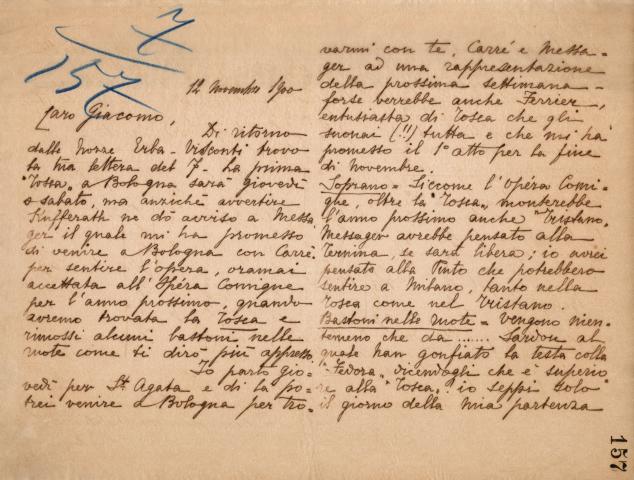 7
157
12 Novembre 1900
Caro Giacomo,
Di ritorno
dalle Nozze Erba-Visconti trovo
la tua lettera del 7 - La prima
"Tosca" a Bologna sarà giovedì
o sabato, ma anzichè avvertire
Kufferath ne dò avviso a Messa=
ger il quale mi ha promesso
di venire a Bologna con Carré
per sentire l'opera, oramai
accettata all'Opéra Comique
per l'anno prossimo, quando
avremo trovata la Tosca e
rimossi alcuni bastoni nelle
ruote come ti dirò più appresso.
Io parto gio=
vedì per St Agata e di là po=
trei venire a Bologna per tro=
varmi con te, Carré e Messa=
ger ad una rappresentazione
della prossima settimana -
forse verrebbe anche Ferrier,
entusiasta di Tosca che gli
suonai (!!) tutta e che mi ha
promesso il 1° atto per la fine
di novembre.
Soprano = Siccome l'Opéra Comi=
que, oltre la "Tosca" monterebbe
l'anno prossimo anche "Tristano",
Messager avrebbe pensato alla
Ternina, se sarà libera; io avrei
pensato alla Pinto che potrebbero
sentire a Milano, tanto nella
Tosca come nel Tristano.
Bastoni nelle ruote = Vengono nien=
temeno che da ....... Sardou al
quale han gonfiato la testa colla
"Fedora" dicendogli che è superio=
re alla "Tosca". io seppi solo
il giorno della mia partenza
157